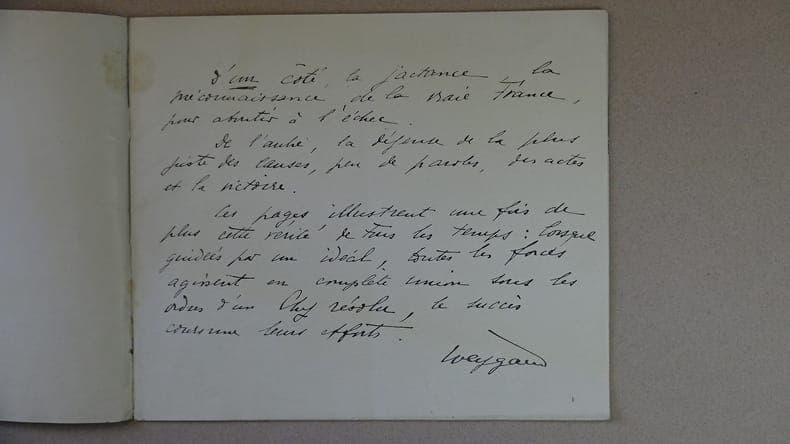 D'un côté, la jactance, la
méconnaissance de la vraie France,
pour aboutir à l'échec.
De l'autre, la défense de la plus
juste des causes, peu de paroles, des actes
et la victoire.
Ces pages illustrent une fois de
plus cette vérité de tous les temps : lorsque
guidées par un idéal, toutes les forces
agissent en complète union sous les
ordres d'un Chef résolu, le succès
couronne leurs efforts.
Weygand